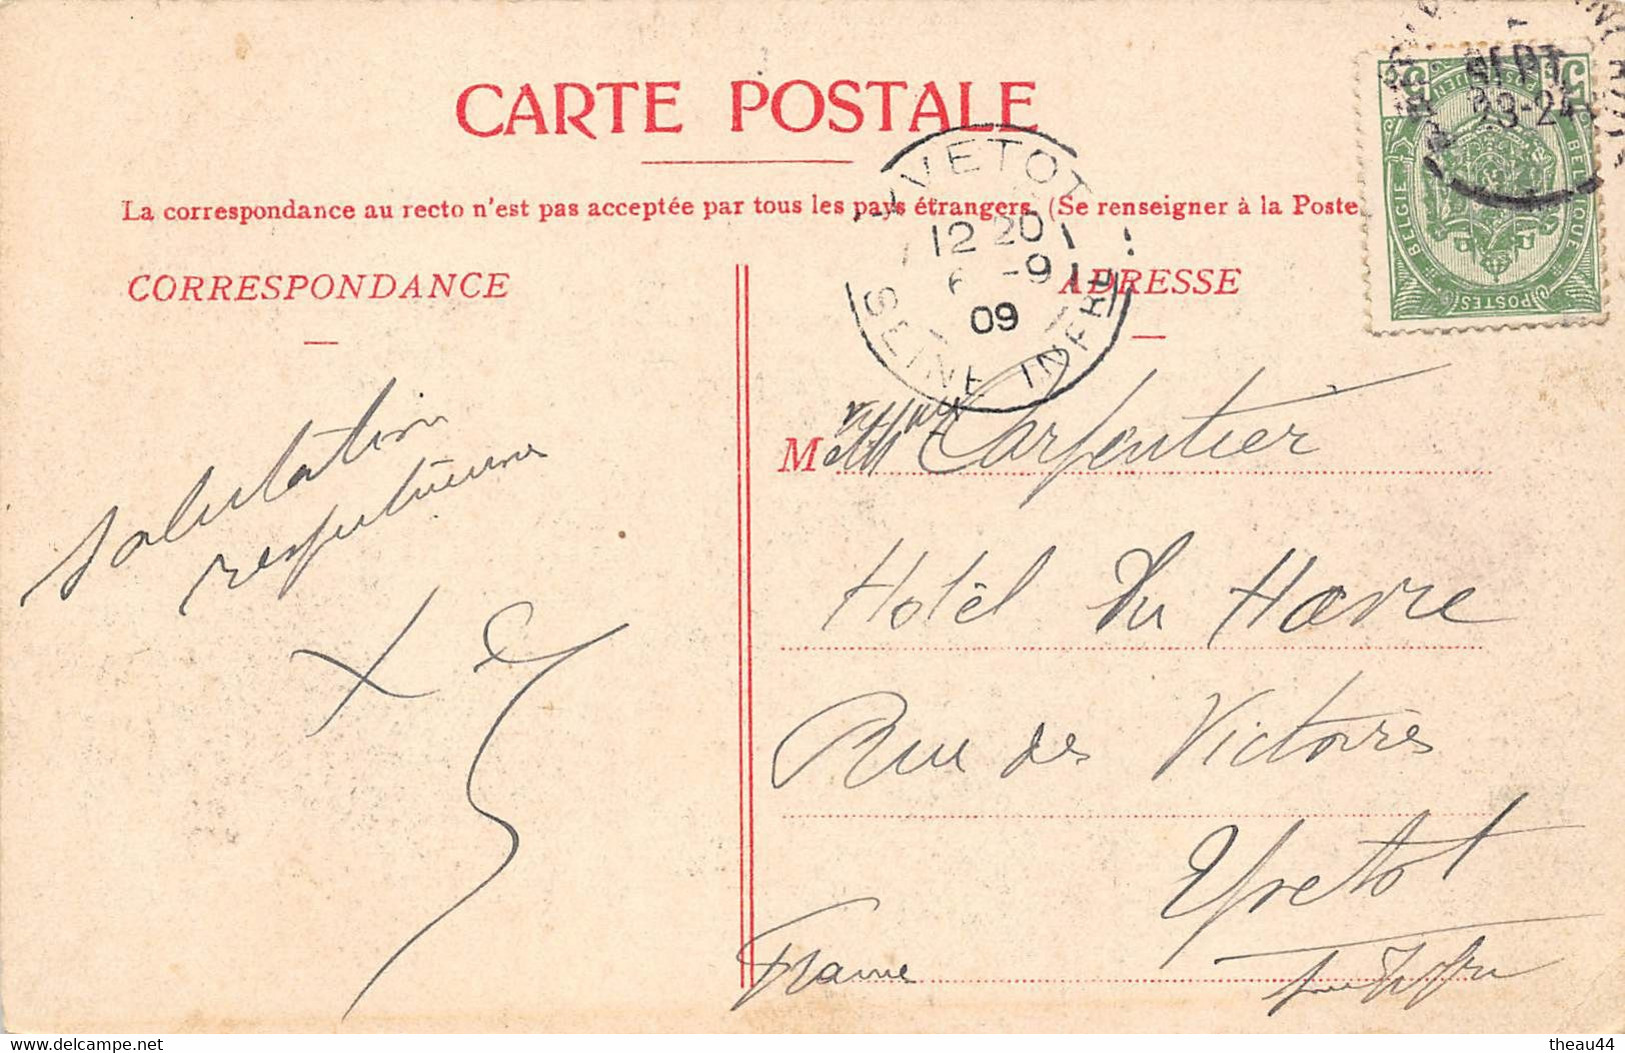 CARTE POSTALE
La correspondance au recto n'est pas acceptée par tous les pays étrangers. (Se renseigner à la Poste
CORRESPONDANCE
ADRESSE
YVETOT
12 20
6 -9
09
SEINE INFRE
SEPT
23-24
5 5
BELGIE BELGIQUE
POSTES
salutation
respectueuse
M Carpentier
Hotêl Du Havre
Rue des Victoires
Yvetot
France
www.delcampe.net
theau44